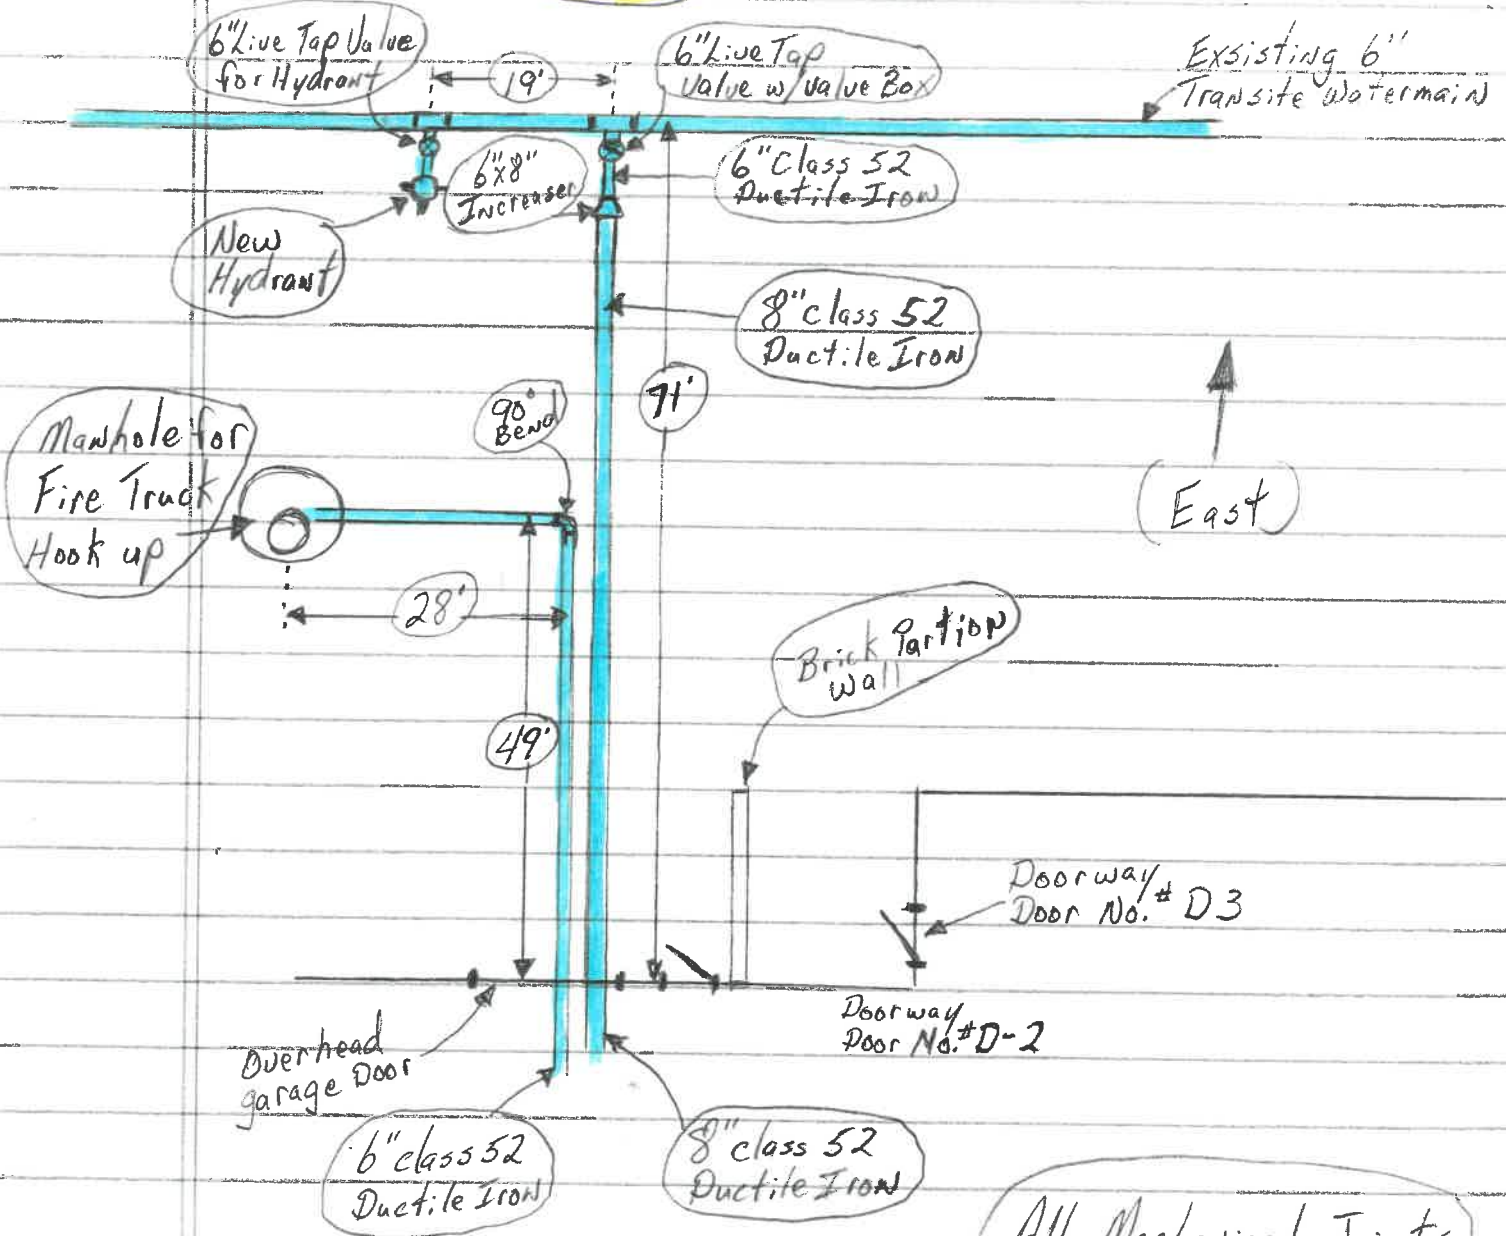 6" Live Tap Valve
for Hydrant
19'
6" Live Tap
Valve w/ valve Box
Exsisting 6"
Transite Watermain
6"x8"
Increaser
6" Class 52
Ductile Iron
New
Hydrant
8" class 52
Ductile Iron
90°
Bend
71'
Manhole for
Fire Truck
Hook up
(East)
28'
Brick Partion
Wall
49'
Doorway
Door No.# D3
Doorway
Door No.# D-2
Overhead
garage Door
6" class 52
Ductile Iron
8" class 52
Ductile Iron
All Mechanical Joints